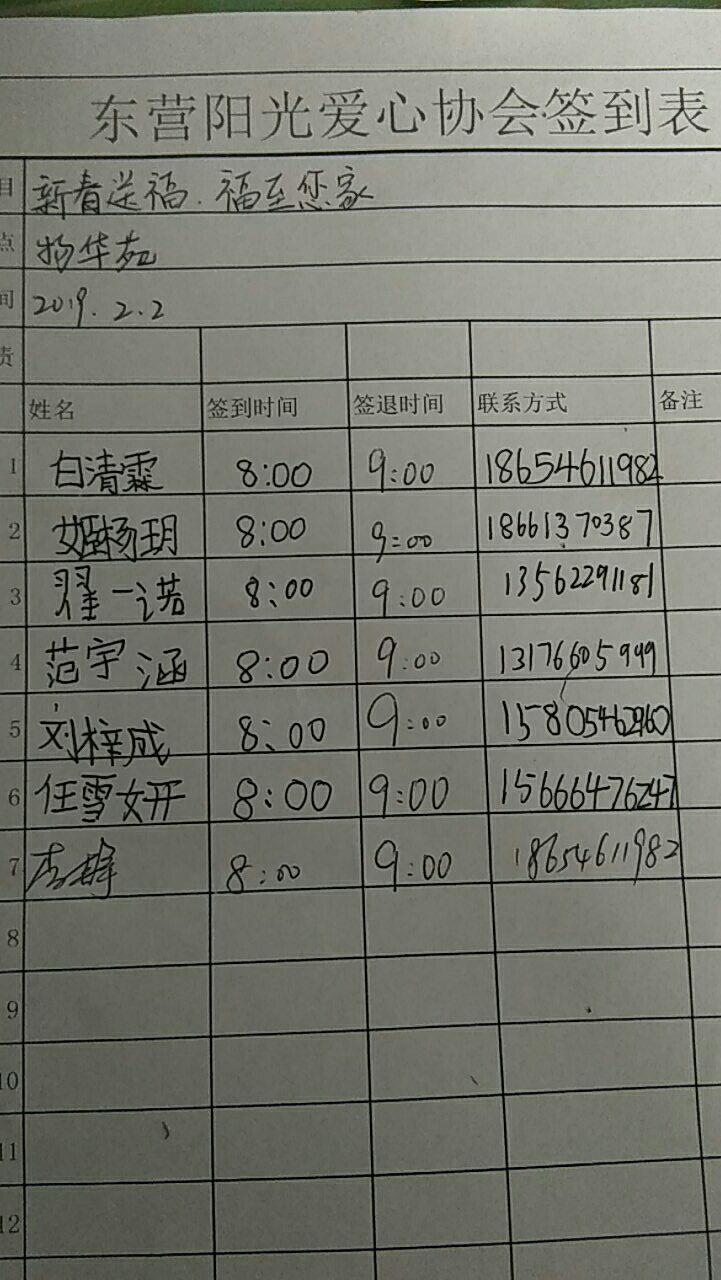 东营阳光爱心协会签到表
目 新春送福.福至您家
点 物华苑
间 2019.2.2
责
姓名 签到时间 签退时间 联系方式 备注
1 白清霖 8:00 9:00 18654611982
2 姬杨玥 8:00 9:00 18661370387
3 翟一诺 8:00 9:00 13562291181
4 范宇涵 8:00 9:00 13176605999
5 刘梓成 8:00 9:00 15805462960
6 任雪妍 8:00 9:00 15666476247
7 8:00 9:00 18654611982
8
9
10
11
12